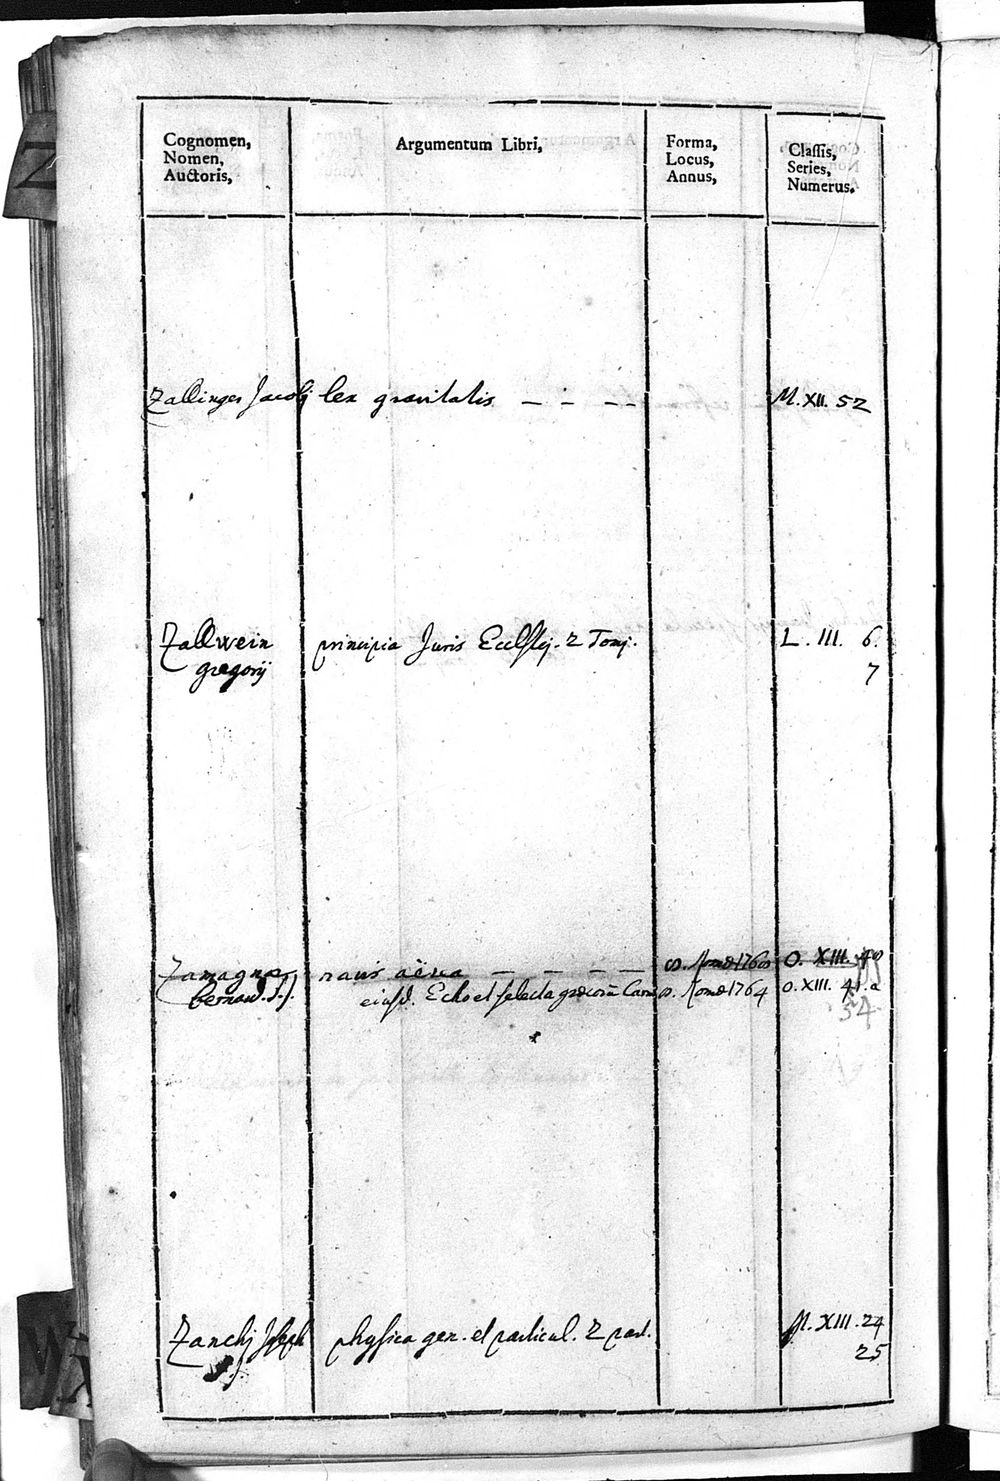 Cognomen,
Nomen,
Auctoris,
Argumentum Libri,
Forma,
Locus,
Annus,
Classis,
Series,
Numerus.
Zallinger Jacobj lex gravitatis — - — - - M. XII. 52
Zallwein principia Juris Eccl. 2 Tomj. L. III. 6.
gregorij 7
Zamagna navis aëria — — — — 8. Romæ 1768 O. XIII.
bernard. S.J. eiusd. Echo et selecta græcorū Carm. 8. Romæ 1764 O. XIII. 41.a
54
Zanchj Joseph physica gen. et particul. 2 part. M. XIII. 24
25